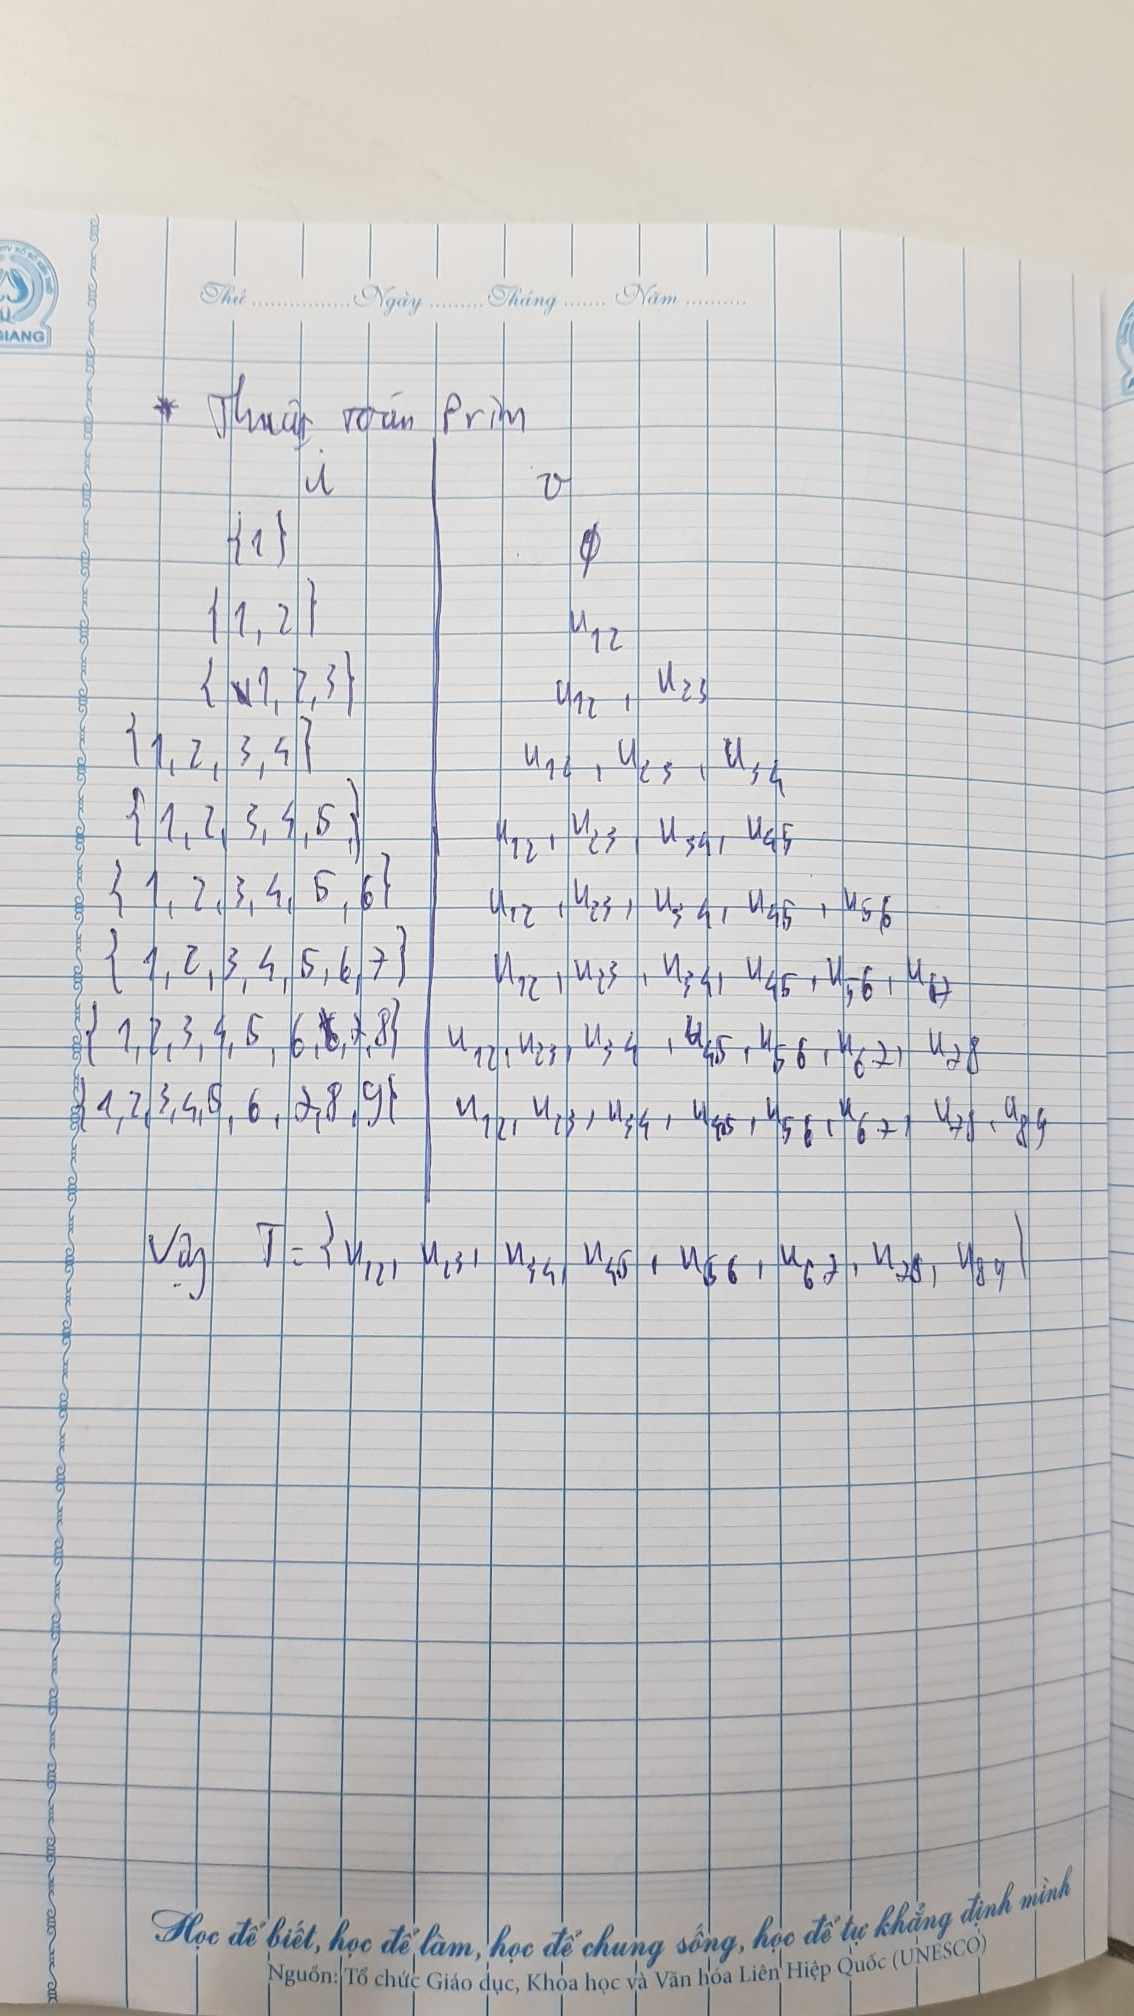 GIANG
Thứ ................ Ngày ......... Tháng ....... Năm ..........
* Thuật toán Prim
i v
{1} ∅
{1, 2} u12
{1, 2, 3} u12, u23
{1, 2, 3, 4} u12, u23, u34
{1, 2, 3, 4, 5} u12, u23, u34, u45
{1, 2, 3, 4, 5, 6} u12, u23, u34, u45, u59
{1, 2, 3, 4, 5, 6, 7} u12, u23, u34, u45, u59
{1, 2, 3, 4, 5, 6, 7, 8} u12, u23, u34, u45, u59, u97, u78
{1, 2, 3, 4, 5, 6, 7, 8, 9} u12, u23, u34, u45, u59, u97, u78, u86
Vậy T = {u12, u23, u34, u45, u59, u97, u78, u86}
Học để biết, học để làm, học để chung sống, học để tự khẳng định mình
Nguồn: Tổ chức Giáo dục, Khoa học và Văn hóa Liên Hiệp Quốc (UNESCO)